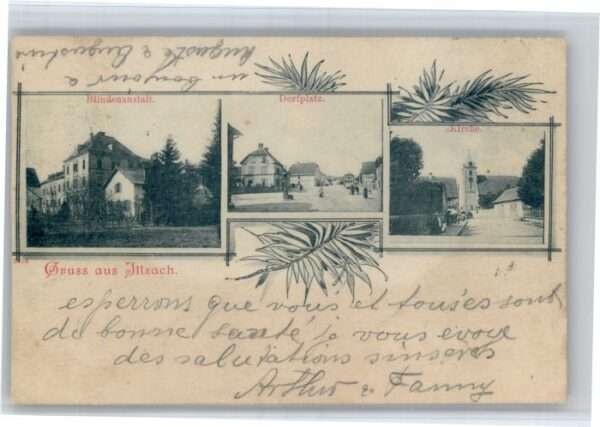 un bonjour a
Auguste & Augustine
Blindenanstalt.
Dorfplatz.
Kirche.
Gruss aus Illzach.
esperrons que vous et tous'es sont
de bonne santé je vous evoye
des salutations sinseres
Arthur & Fanny